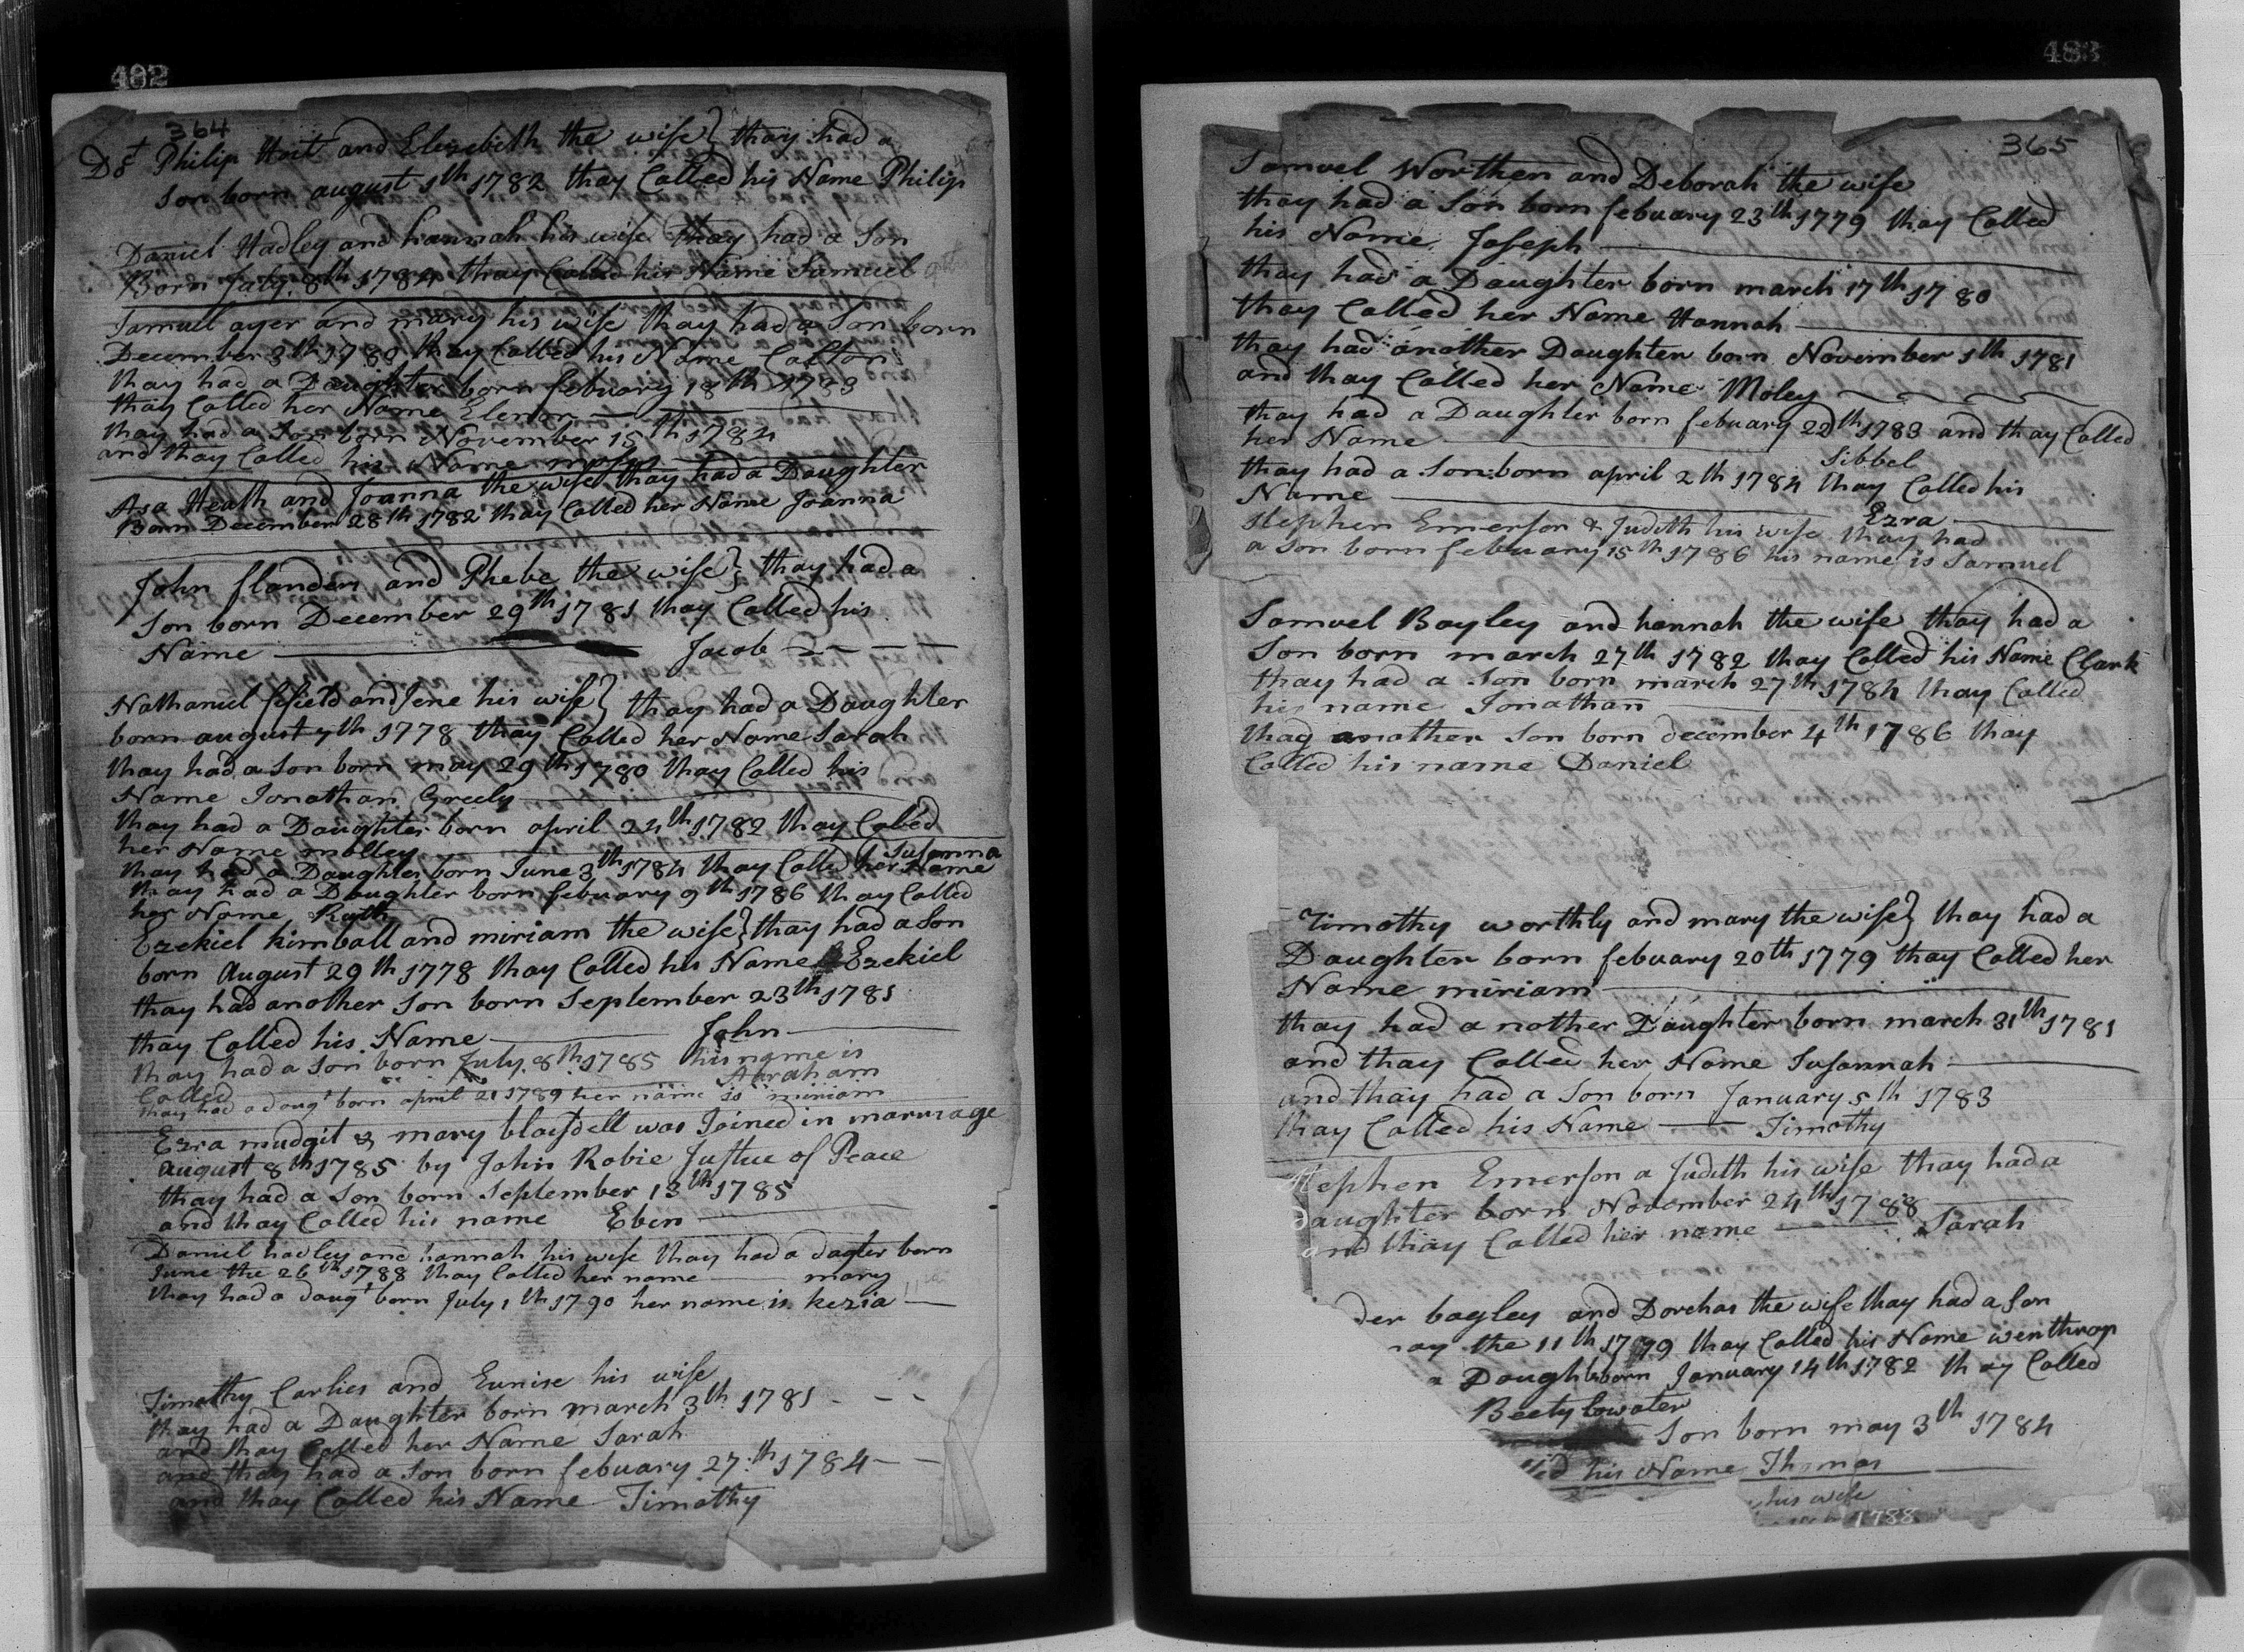 482
364
Dct Philip Hoit and Elezebeth the wife } thay had a
Son born august 1th 1782 thay Called his Name Philip
Daniel Hadley and hannah his wife Thay had a Son
Born July 8th 1784 thay Called his Name Samuel
Samuell ayer and mary his wife thay had a Son born
December 3th 1780 thay Called his Name Caston
thay had a Daughter born febuary 18th 1783
thay Called her Name Elenor
thay had a Son born November 15th 1784
and thay Called his Name moses
Asa Heath and Joanna the wife thay had a Daughter
Born December 28th 1782 thay Called her Name Joanna
John flanders and Phebe the wife } thay had a
Son born December 29th 1781 thay Called his
Name Jacob
Nathaniel fifield and Jene his wife } thay had a Daughter
born august 7th 1778 thay Called her Name Sarah
thay had a Son born may 29th 1780 thay Called his
Name Jonathan Greely
thay had a Daughter born april 24th 1782 thay Called
her Name molley
Susanna
thay had a Daughter born June 3th 1784 thay Called her Name
thay had a Daughter born febuary 9th 1786 thay Called
her Name Ruth
Ezekiel kimball and miriam the wife } thay had a Son
born August 29th 1778 thay Called his Name Ezekiel
thay had another Son born September 23th 1781
thay Called his Name John
thay had a Son born July 8th 1785 his name is
Called Abraham
thay had a daugt born april 21 1789 her name is miriam
Ezra mudgit & mary blasdell was Joined in marriage
august 8th 1785 by John Robie Justice of Peace
thay had a Son born September 13th 1785
and thay Called his name Eben
Daniel hadley and hannah his wife thay had a dagter born
June the 26th 1788 thay Called her name mary
thay had a daugt born July 1th 1790 her name is kezia
Timothy Carlies and Eunise his wife
thay had a Daughter born march 3th 1781
and thay Called her Name Sarah
and thay had a Son born febuary 27th 1784
and thay Called his Name Timothy
483
365
Samuel Worthen and Deborah the wife
thay had a Son born febuary 23th 1779 thay Called
his Name Joseph
thay had a Daughter born march 17th 1780
thay Called her Name Hannah
thay had another Daughter born November 1th 1781
and thay Called her Name Moley
thay had a Daughter born febuary 22th 1783 and thay Called
her Name Sibbel
thay had a Son born april 2th 1784 thay Called his
Name Ezra
Stephen Emerson & Judith his wife thay had
a son born febuary 15th 1786 his name is Samuel
Samuel Bayley and hannah the wife thay had a
Son born march 27th 1782 thay Called his Name Clark
thay had a Son born march 27th 1784 thay Called
his name Jonathan
thag another Son born december 4th 1786 thay
Called his name Daniel
Timothy worthly and mary the wife } thay had a
Daughter born febuary 20th 1779 thay Called her
Name miriam
thay had a nother Daughter born march 31th 1781
and thay Called her Name Susannah
and thay had a Son born January 5th 1783
thay Called his Name Timothy
Stephen Emerson a Judith his wife thay had a
daughter born November 24th 1788
and thay Called her name Sarah
der bagley and Dorchas the wife thay had a Son
ay the 11th 1779 thay Called his Name winthrop
a Daughter born January 14th 1782 thay Called
Beety lowater
Son born may 3th 1784
led his Name Thomas
his wife
1788